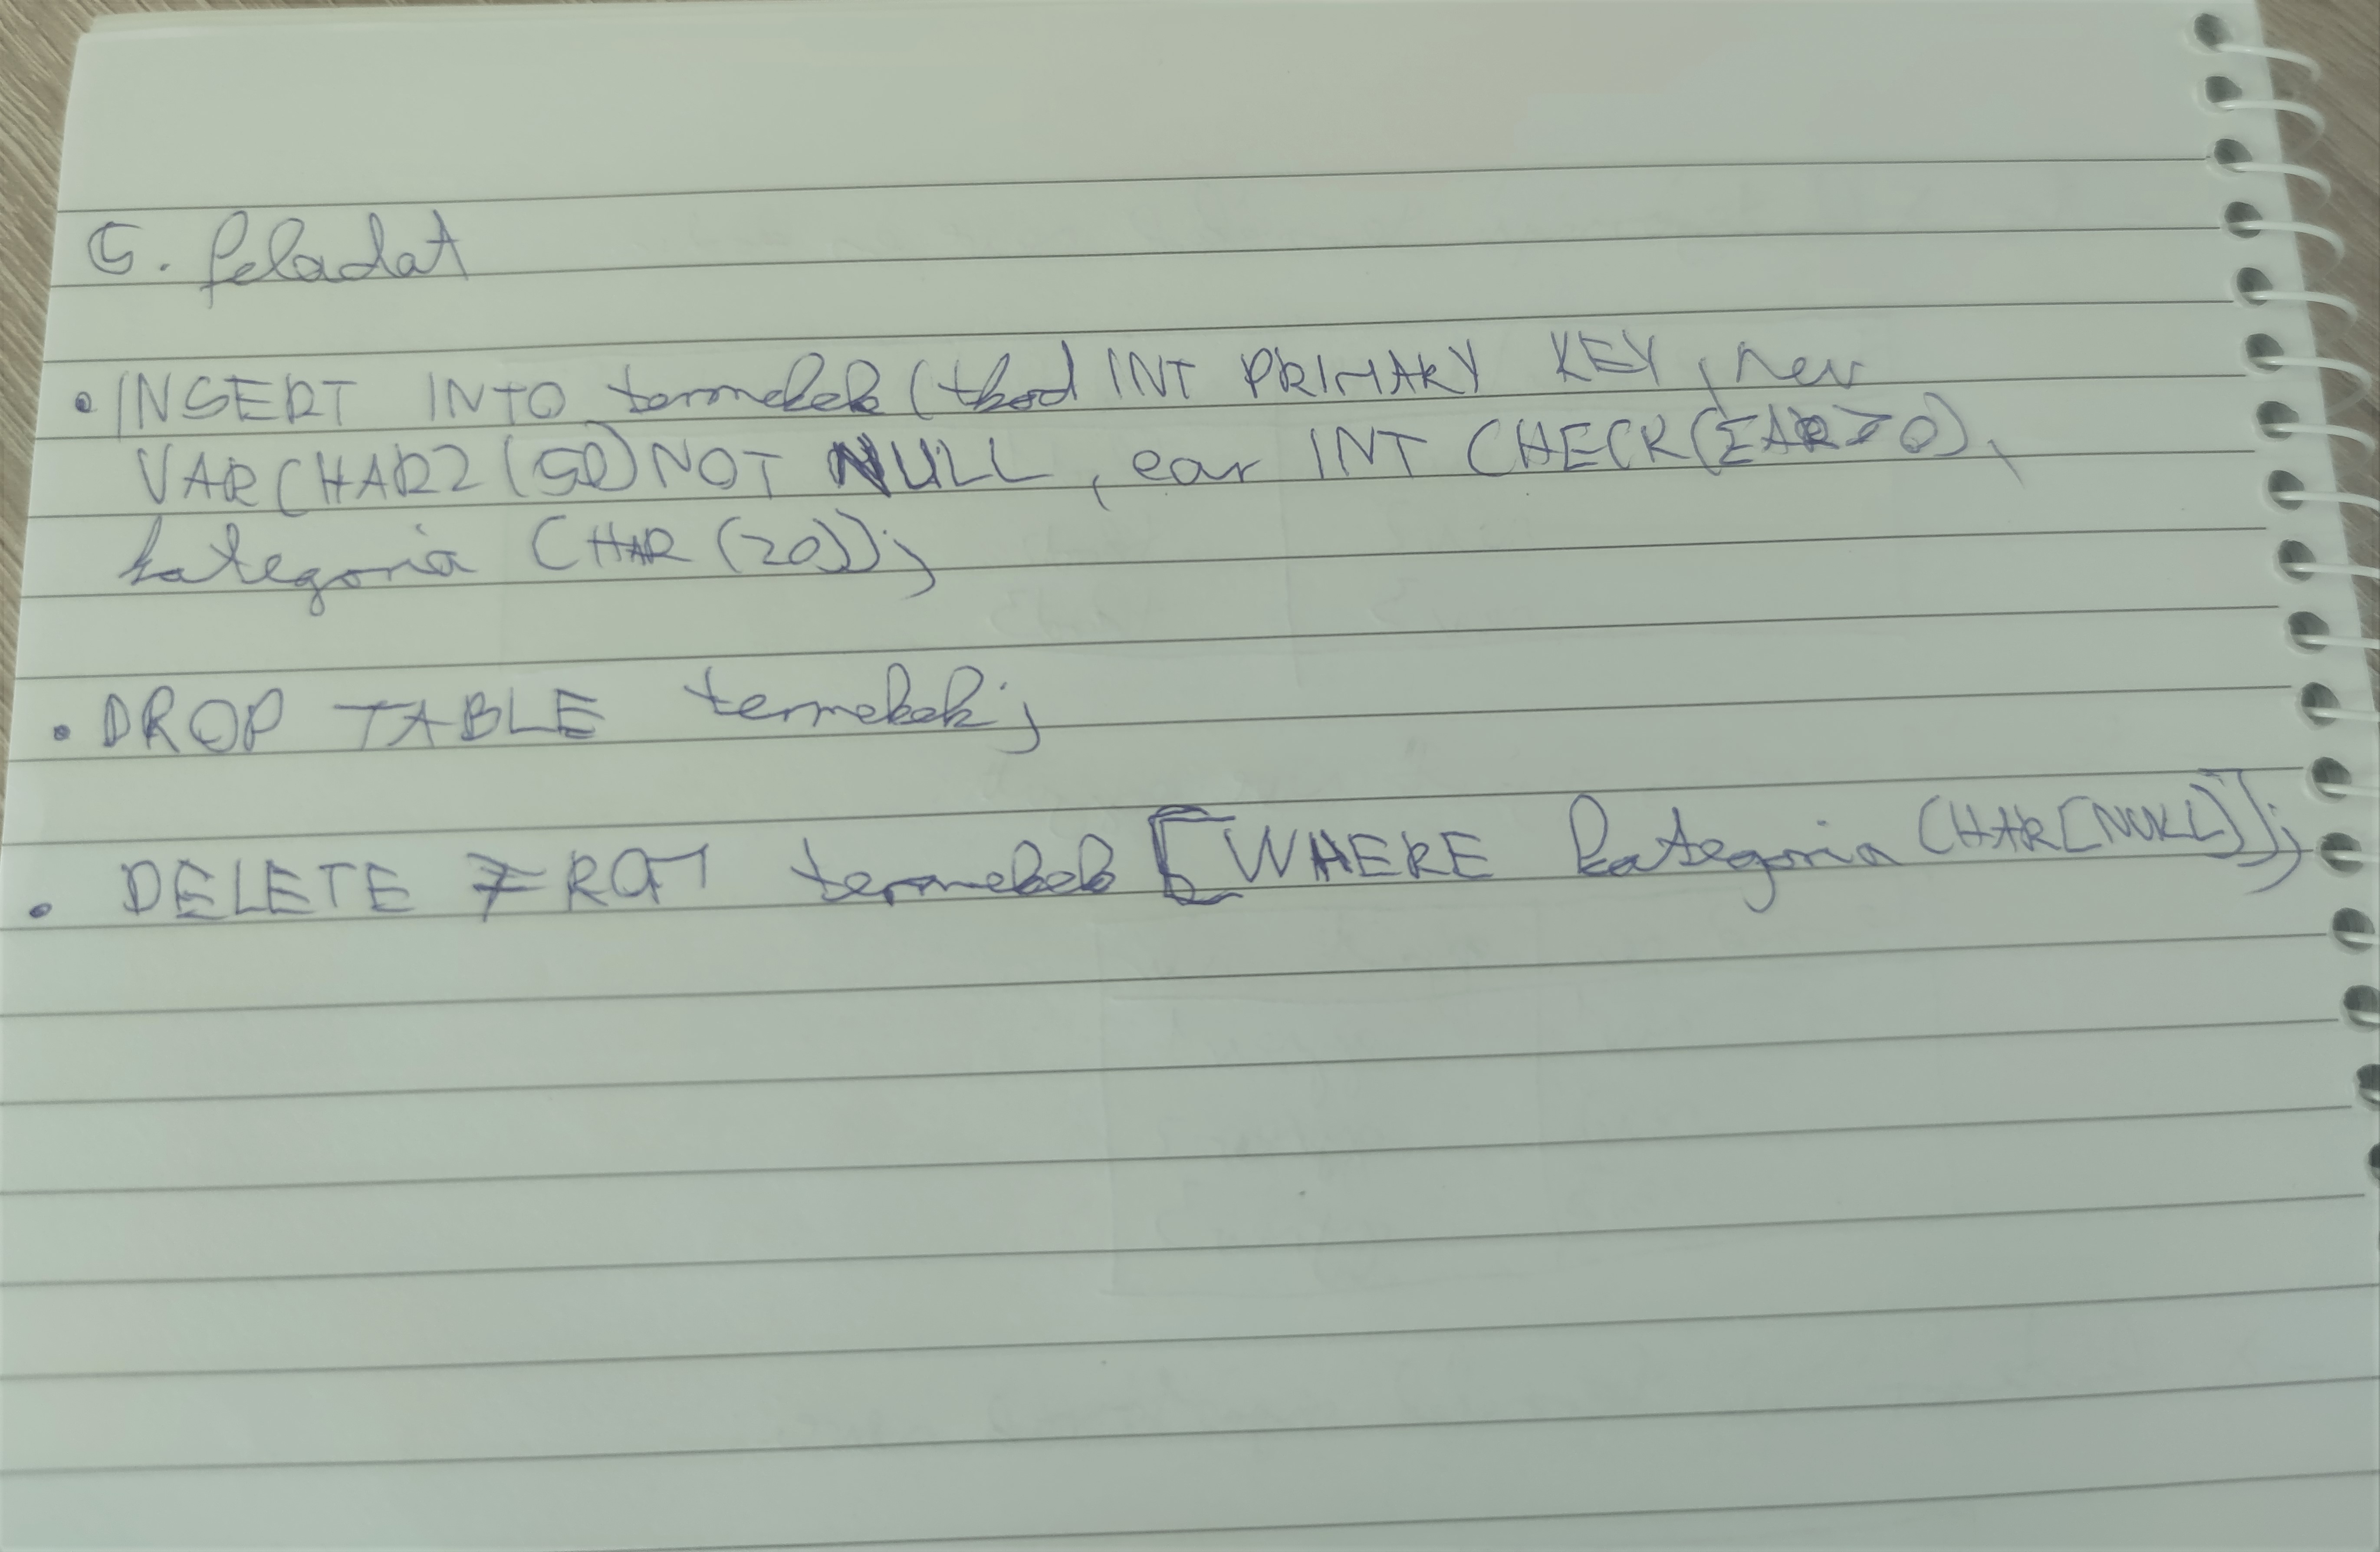 5. feladat
• INSERT INTO termekek (tkod INT PRIMARY KEY, nev
VARCHAR2 (50) NOT NULL, ear INT CHECK(EAR>0),
kategoria CHAR (20));
• DROP TABLE termekek;
• DELETE FROM termekek [WHERE kategoria CHAR[NULL]];